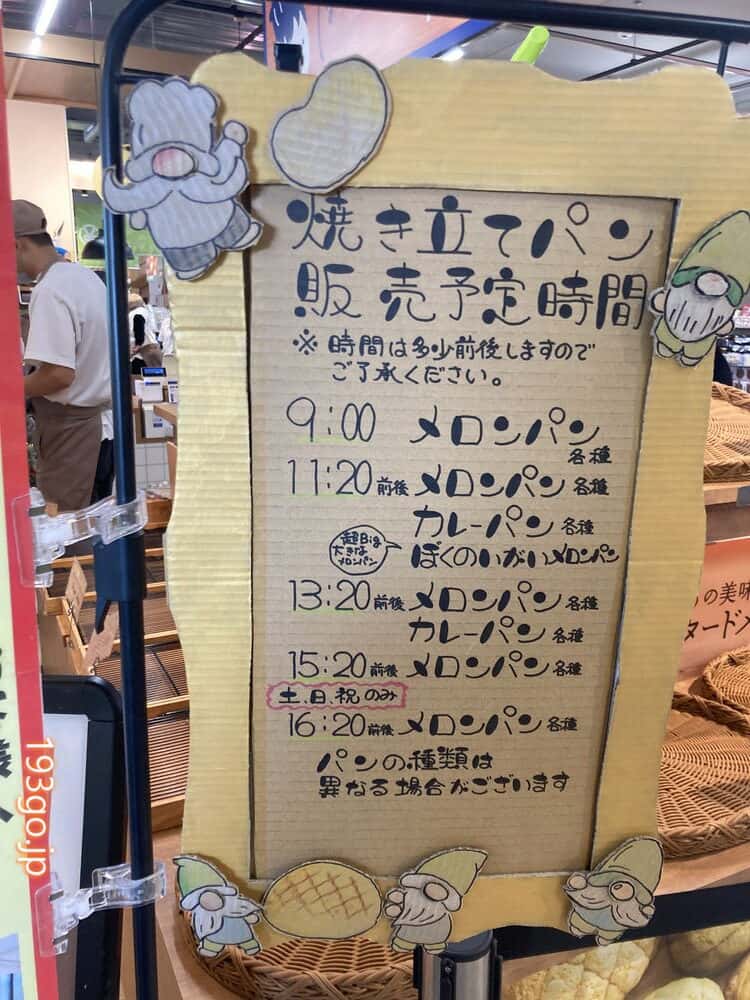 焼き立てパン
販売予定時間
※ 時間は多少前後しますので
ご了承ください。
9:00 メロンパン各種
11:20前後 メロンパン各種
カレーパン各種
超Big
大きな
メロンパン
ぼくのいがいメロンパン
13:20前後 メロンパン各種
カレーパン各種
15:20前後 メロンパン各種
土、日、祝のみ
16:20前後 メロンパン各種
パンの種類は
異なる場合がございます
の美味
タードメ
193go.jp